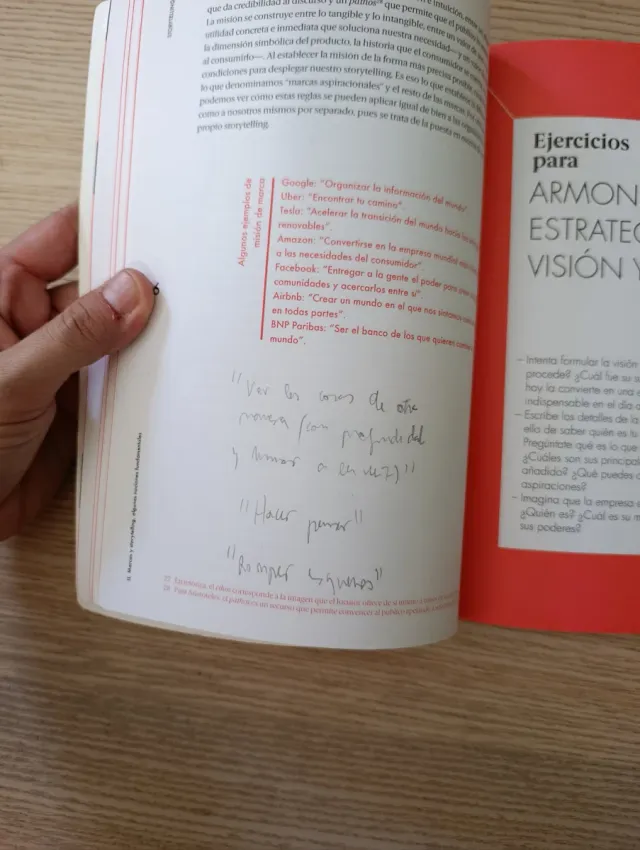 que da credibilidad al discurso y un pathos que permite que el
La misión se construye entre lo tangible y lo intangible, entre un valor de
utilidad concreta e inmediata que soluciona nuestra necesidad— y un
la dimensión simbólica del producto, la historia que el consumidor se
al consumirlo—. Al establecer la misión de la forma más precisa posible,
condiciones para desplegar nuestro storytelling. Es eso lo que
lo que denominamos "marcas aspiracionales" y el resto de las marcas.
podemos ver cómo estas reglas se pueden aplicar igual de bien a las
como a nosotros mismos por separado, pues se trata de la puesta en
propio storytelling.
Algunos ejemplos de
misión de marca
Google: "Organizar la información del mundo".
Uber: "Encontrar tu camino".
Tesla: "Acelerar la transición del mundo hacia
renovables".
Amazon: "Convertirse en la empresa mundial más
a las necesidades del consumidor".
Facebook: "Entregar a la gente el poder para
comunidades y acercarlos entre sí".
Airbnb: "Crear un mundo en el que nos sintamos
en todas partes".
BNP Paribas: "Ser el banco de los que quieren
mundo".
"Ver las cosas de otra
manera (con profundidad
y humor a la vez)"
"Hacer pensar"
"Romper esquemas"
el ethos corresponde a la imagen que el locutor ofrece de sí mismo
Para Aristóteles, el pathos es un recurso que permite convencer al público
Marcas y storytelling: algunas nociones fundamentales
Ejercicios
para
ARMON
ESTRATEG
VISIÓN Y
– Intenta formular la visión
procede? ¿Cuál fue su
hoy la convierte en una
indispensable en el día
– Escribe los detalles de la
ello de saber quién es tu
Pregúntate qué es lo que
¿Cuáles son sus principal
añadido? ¿Qué puedes
aspiraciones?
– Imagina que la empresa
¿Quién es? ¿Cuál es su
sus poderes?